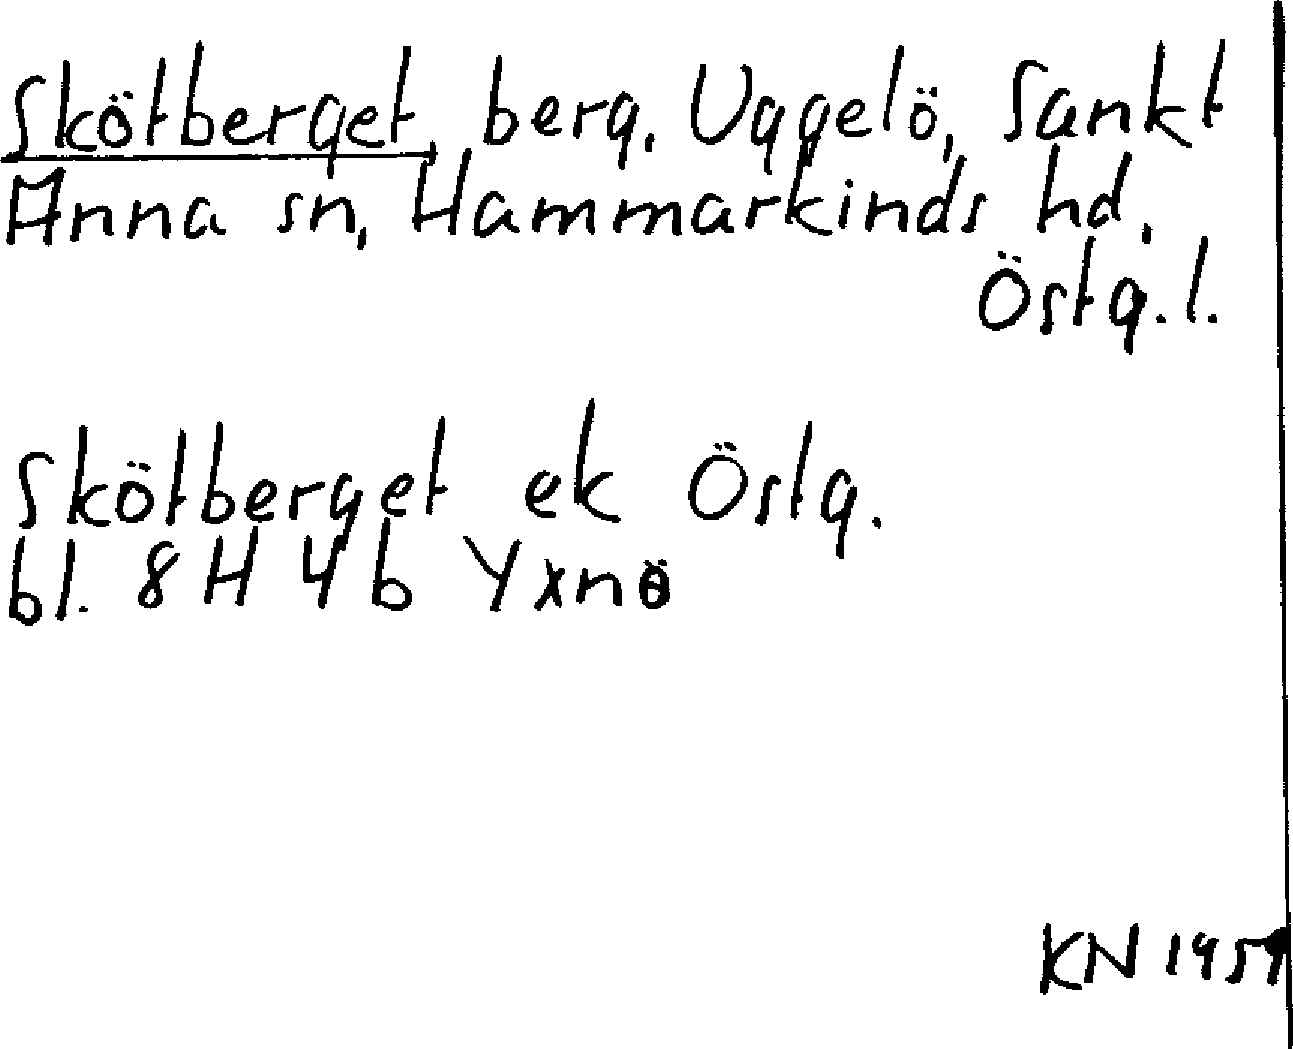 Skötberget, berg, Uggelö, Sankt
Anna sn, Hammarkinds hd,
Östg. l.
Skötberget ek Östg.
bl. 8 H 4 b Yxnö
KN